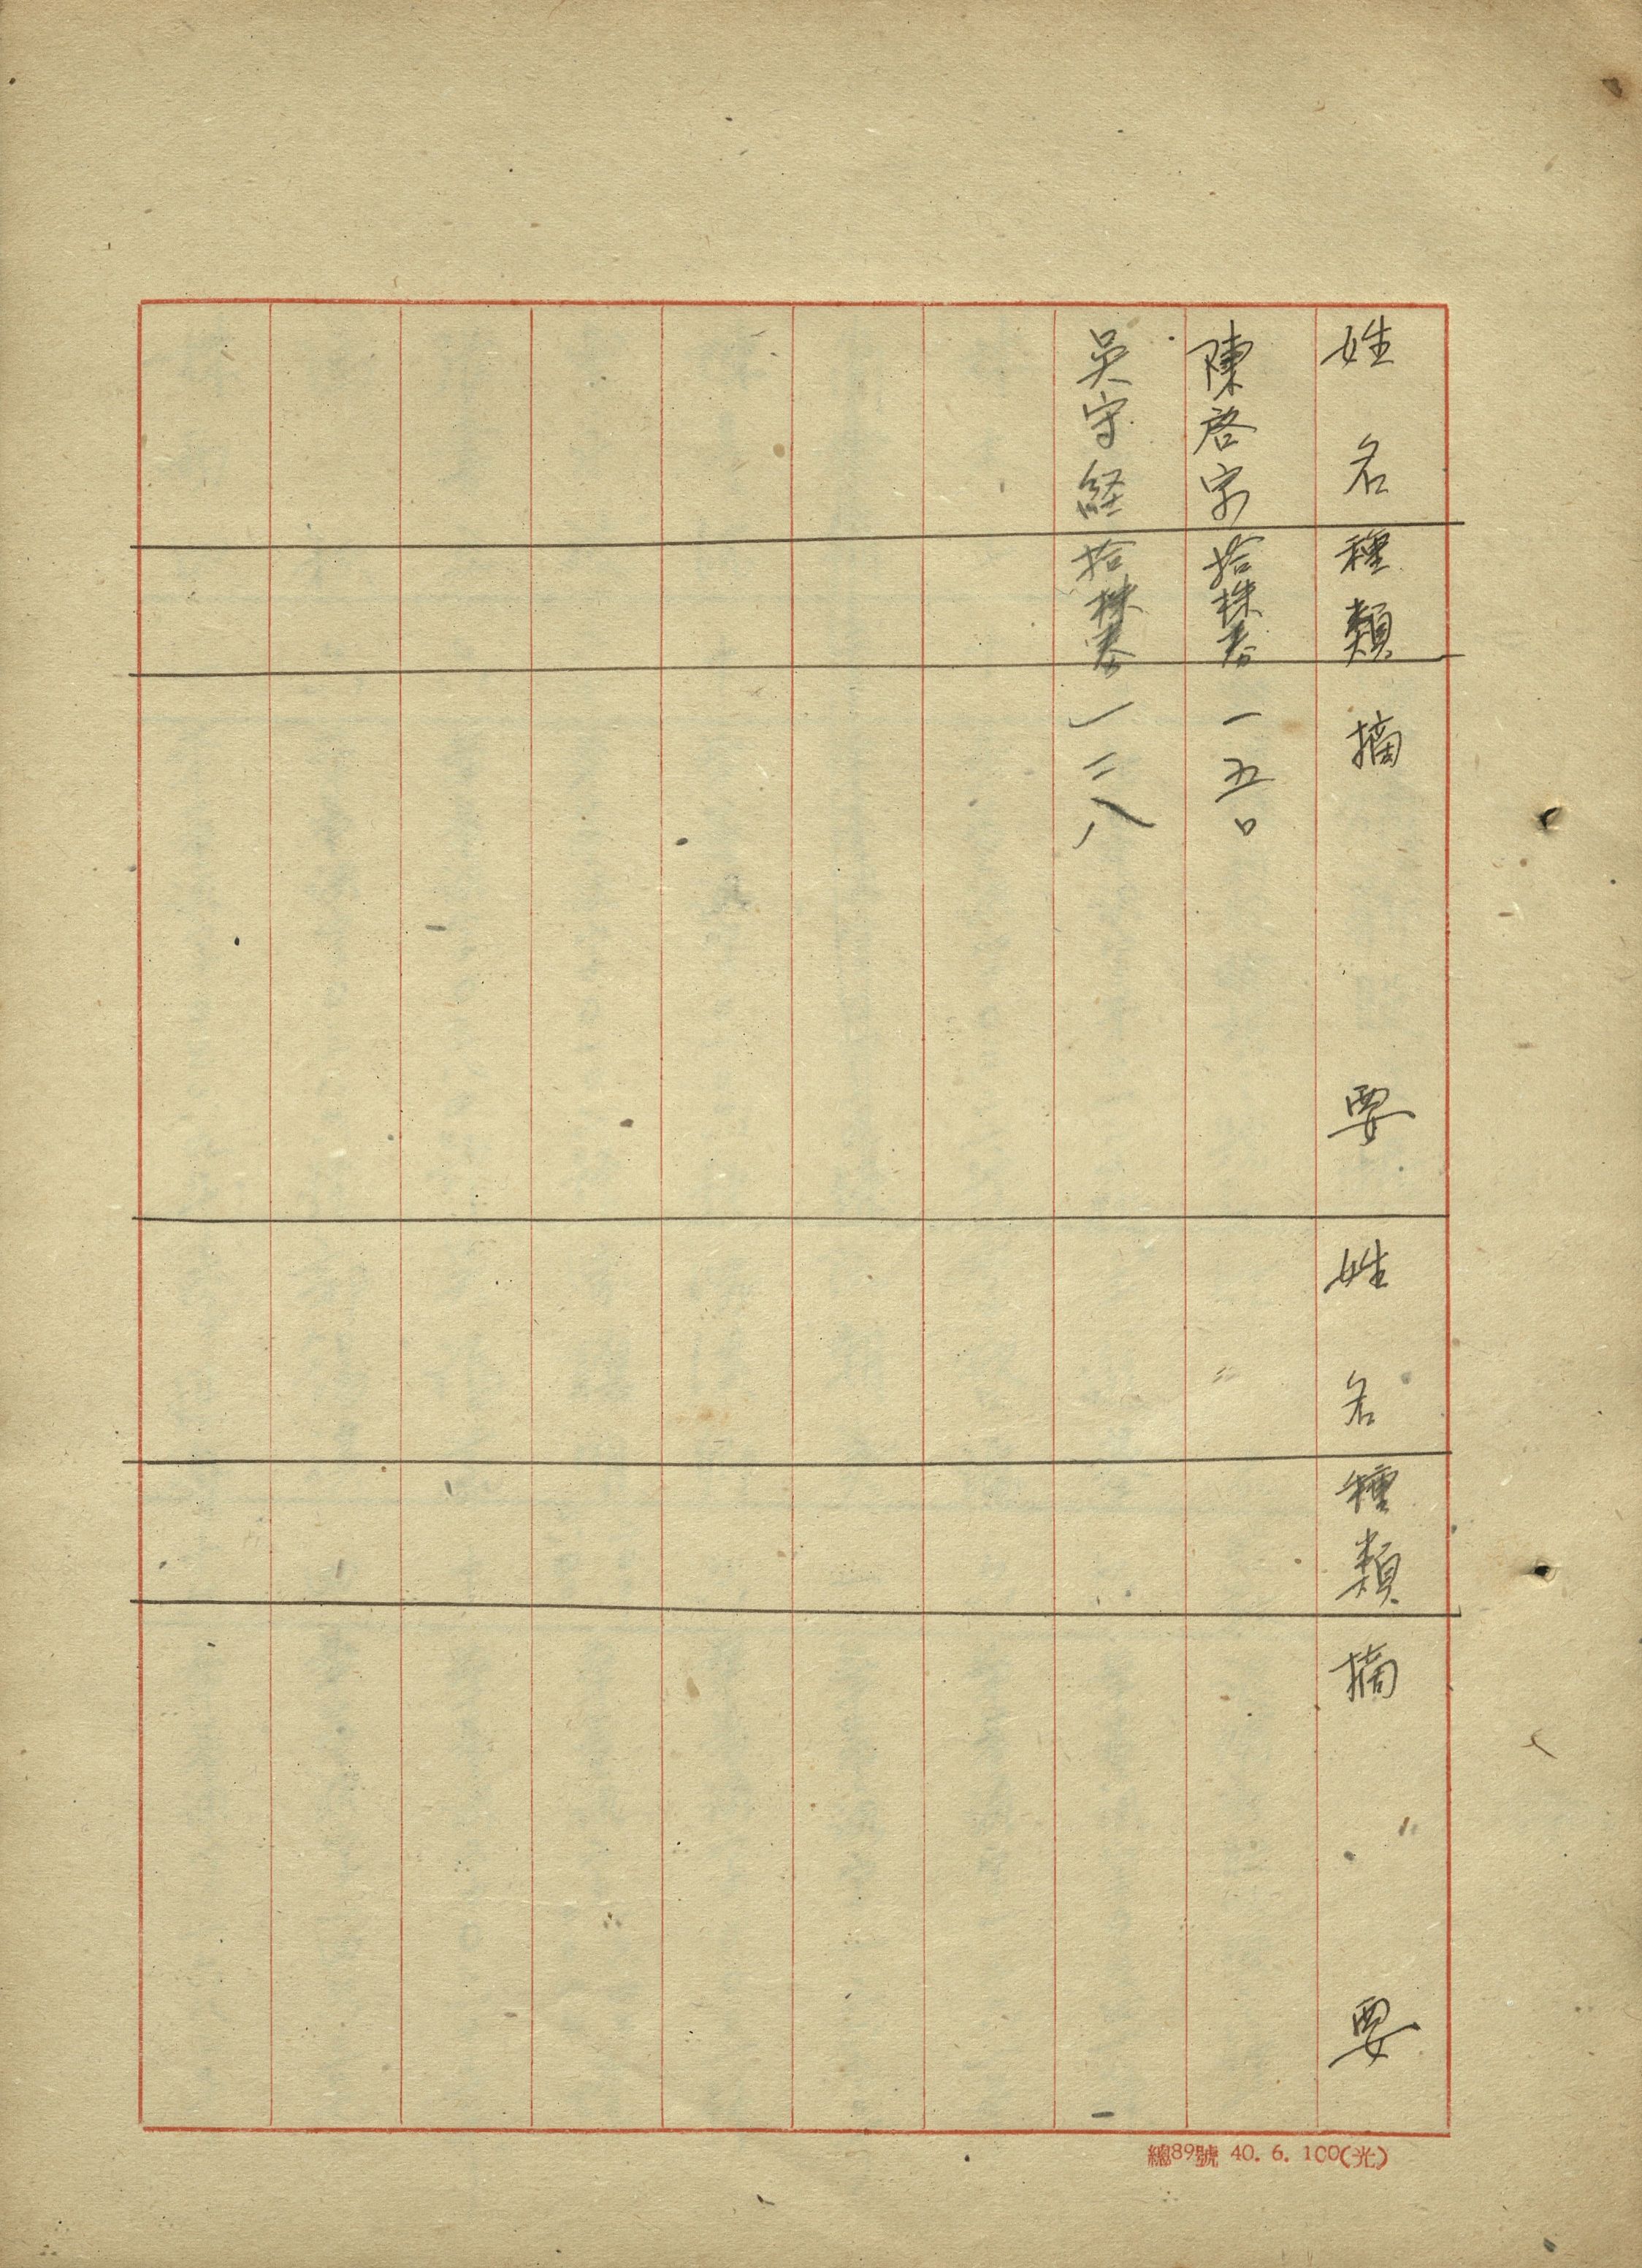 姓名 種類 摘要 姓名 種類 摘要
陳啓宗 拾株券 一五〇
吳守経 拾株券 一三八
總89號 40. 6. 100(光)